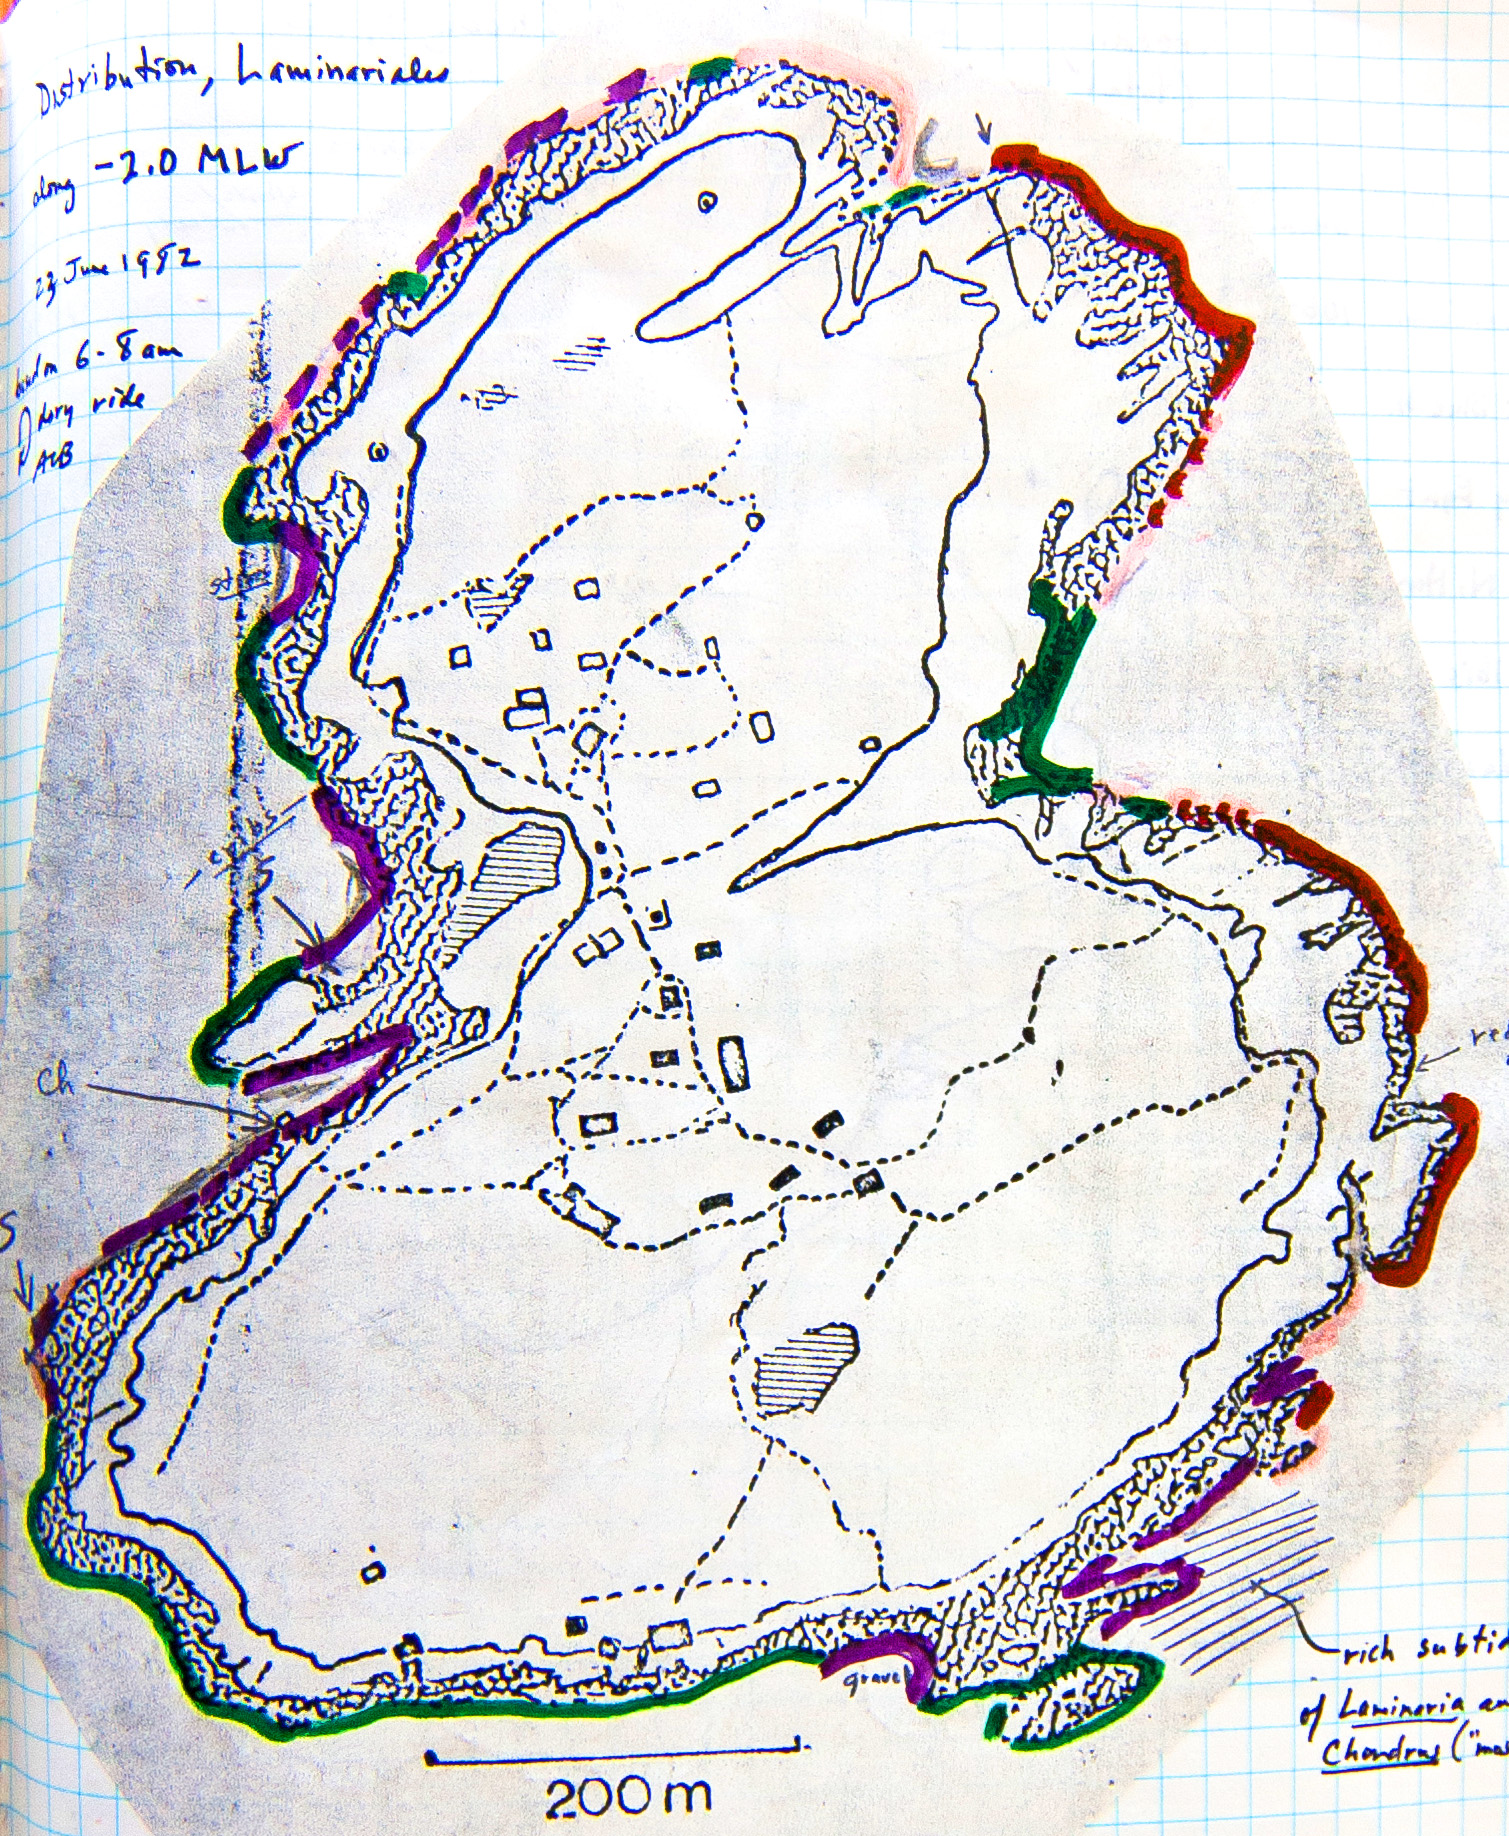 Distribution, Laminariales
along -2.0 MLW
23 June 1982
6-8 am
dory ride
ACB
Ch
S
gravel
rich subtid
of Laminaria an
Chondrus ("mos
200m